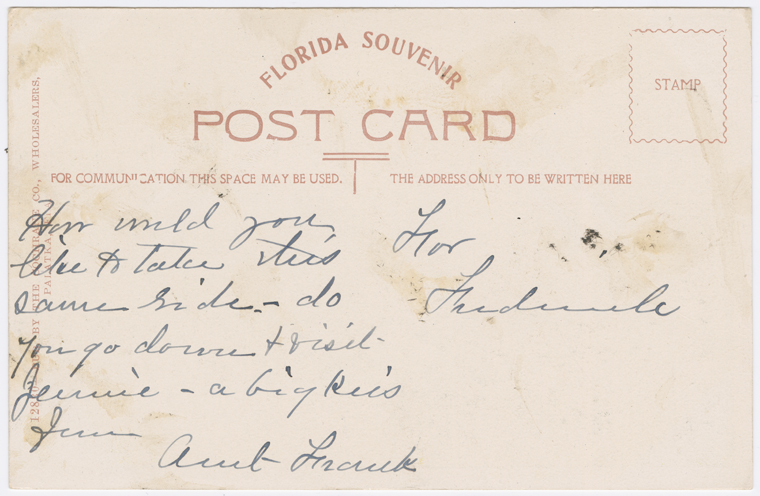 FLORIDA SOUVENIR
POST CARD
STAMP
FOR COMMUNICATION THIS SPACE MAY BE USED.
THE ADDRESS ONLY TO BE WRITTEN HERE
How would you
like to take this
same ride – do
you go down + visit
Jennie – a big kiss
from
Aunt Frank
For
Frederick
BY THE CO., WHOLESALERS,
PALATKA